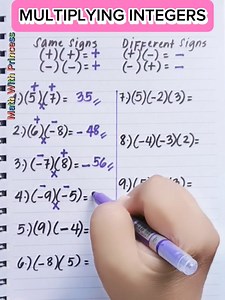 MULTIPLYING INTEGERS
Math With Princess
Same Signs
(+)(+) = +
(-)(-) = +
Different Signs
(+)(-) = -
(-)(+) = -
1.) (5)(7) = 35
2.) (6)(-8) = -48
3.) (-7)(8) = -56
4.) (-9)(-5) =
5.) (9)(-4) =
6.) (-8)(5) =
7.) (5)(-2)(3) =
8.) (-4)(-3)(2) =
9.) (3) =